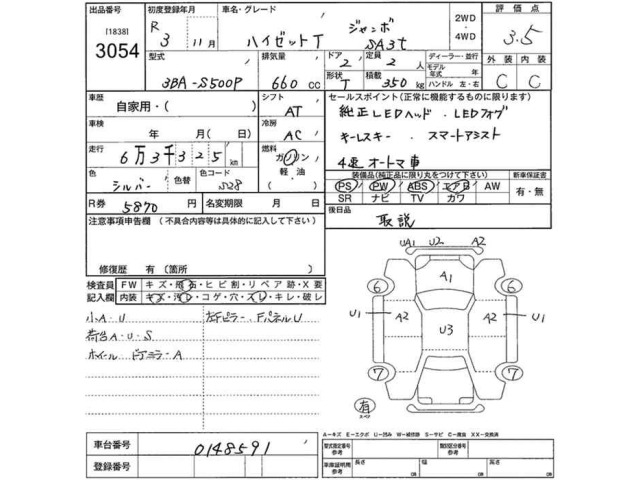 出品番号 初度登録年月 車名・グレード 2WD ・ 4WD 評価点
[1838] R 3 11月 ハイゼットT ジャンボ SA3t 3.5
3054
型式 排気量 ドア 2 定員 2 人 ディーラー・並行 モデル年式 年 外装 内装
3BA-S500P 660 cc 形状 T 積載 350 kg ハンドル 左・右 C C
車歴 自家用・( ) シフト AT セールスポイント(正常に機能するものに限ります)
車検 年 月( ) 冷房 AC 純正LEDヘッド . LEDフォグ
走行 6万3千325 km 燃料 ガソリン 軽油 キーレスキー . スマートアシスト
4速オートマ車
色 シルバー 色替 色コード S28 装備品(純正品に限り丸をつけて下さい) 新車保証書
PS PW ABS エアB AW 有・無
R券 5870 円 名変期限 月 日 SR ナビ TV カワ
注意事項申告欄 (不具合内容等は具体的に記入して下さい) 後日品 取説
修復歴 有 (箇所 )
検査員記入欄 FW キズ・飛石・ヒビ割・リペア跡・X要
内装 キズ・汚レ・コゲ・穴・スレ・キレ・破レ
小A・U 左Fピラー・FパネルU
荷台A・U・S
ホイール ドアミラー・A
UA1 U2 A2
A1
6 6
U1 A2 U3 A2 U1
7 7
有
スペア
A-キズ E-エクボ U-凹み W-補修跡 S-サビ C-腐蝕 XX-交換済
車台番号 0148591
登録番号
型式指定番号 参考 類別区分番号 参考
車庫証明用 参考 長さ cm 幅 cm 高さ cm